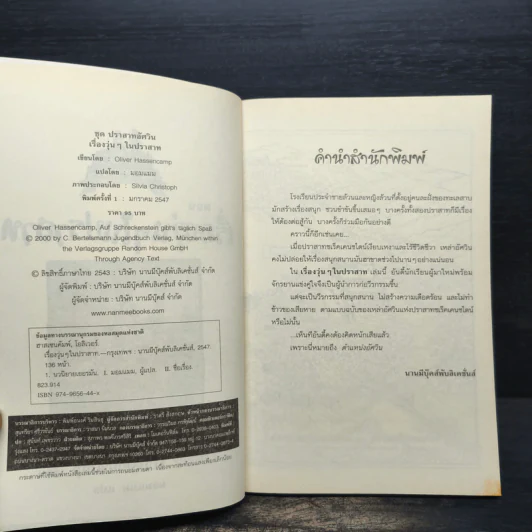 ชุด ปราสาทอัศวิน
เรื่องวุ่นๆ ในปราสาท
เขียนโดย : Oliver Hassencamp
แปลโดย : มอมแมม
ภาพประกอบโดย : Silvia Christoph
พิมพ์ครั้งที่ 1 : มกราคม 2547
ราคา 95 บาท
Oliver Hassencamp, Auf Schreckenstein gibt's täglich Spaß
© 2000 by C. Bertelsmann Jugendbuch Verlag, München within
the Verlagsgruppe Random House GmbH
Through Agency Text
© ลิขสิทธิ์ภาษาไทย 2543 : บริษัท นานมีบุ๊คส์พับลิเคชั่นส์ จำกัด
ผู้จัดพิมพ์ : บริษัท นานมีบุ๊คส์พับลิเคชั่นส์ จำกัด
ผู้จัดจำหน่าย : บริษัท นานมีบุ๊คส์ จำกัด
www.nanmeebooks.com
ข้อมูลทางบรรณานุกรมของหอสมุดแห่งชาติ
ฮาสเซนคัมพ์, โอลิเวอร์.
เรื่องวุ่นๆ ในปราสาท.--กรุงเทพฯ : นานมีบุ๊คส์พับลิเคชั่นส์, 2547.
136 หน้า.
1. นวนิยายเยอรมัน. I. มอมแมม, ผู้แปล. II. ชื่อเรื่อง.
833.914
ISBN 974-9656-44-x
คำนำสำนักพิมพ์
โรงเรียนประจำชายล้วนและหญิงล้วนที่ตั้งอยู่คนละฝั่งของทะเลสาบ
มักสร้างเรื่องสนุก ชวนขำขันขึ้นเสมอๆ บางครั้งทั้งสองปราสาทก็มีเรื่อง
ให้ต้องต่อสู้กัน บางครั้งก็ร่วมมือกันอย่างดี
คราวนี้ก็อีกเช่นเคย...
เมื่อปราสาทชเร็คเคนชไตน์เงียบเหงาและไร้ชีวิตชีวา เหล่าอัศวิน
คงไม่ปล่อยให้เรื่องสนุกสนานมันขาดช่วงไปนานๆ อย่างแน่นอน
ใน เรื่องวุ่นๆ ในปราสาท เล่มนี้ อันดี้นักเรียนผู้มาใหม่พร้อม
จักรยานแข่งคู่ใจจึงเป็นผู้นำการก่อวีรกรรมขึ้น
แต่จะเป็นวีรกรรมที่สนุกสนาน ไม่สร้างความเดือดร้อน และไม่ทำ
ข้าวของเสียหาย ตามแบบฉบับของเหล่าอัศวินแห่งปราสาทชเร็คเคนชไตน์
หรือไม่นั้น
...เห็นทีอันดี้คงต้องคิดหนักเสียแล้ว
เพราะนี่หมายถึง ตำแหน่งอัศวิน
นานมีบุ๊คส์พับลิเคชั่นส์